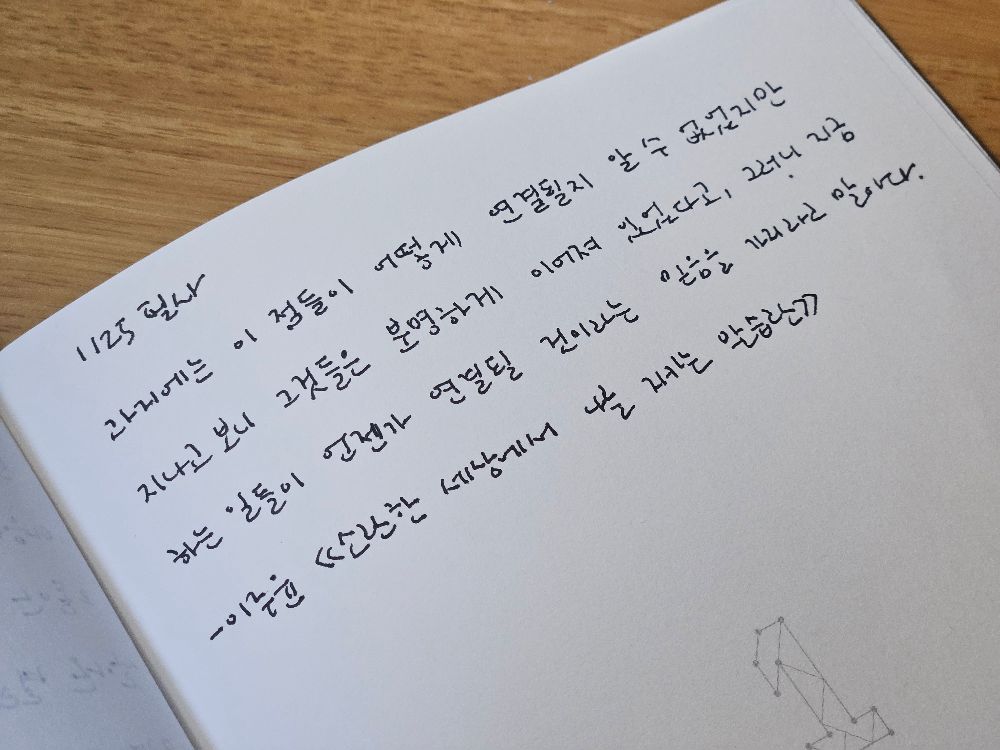 1125 필사
과거에는 이 점들이 어떻게 연결될지 알 수 없었지만
지나고 보니 그것들은 분명하게 이어져 있었다고, 그러니 지금
하는 일들이 언젠가 연결될 것이라는 믿음을 가지라고 말이다.
《산란한 세상에서 나를 지키는 안습관》